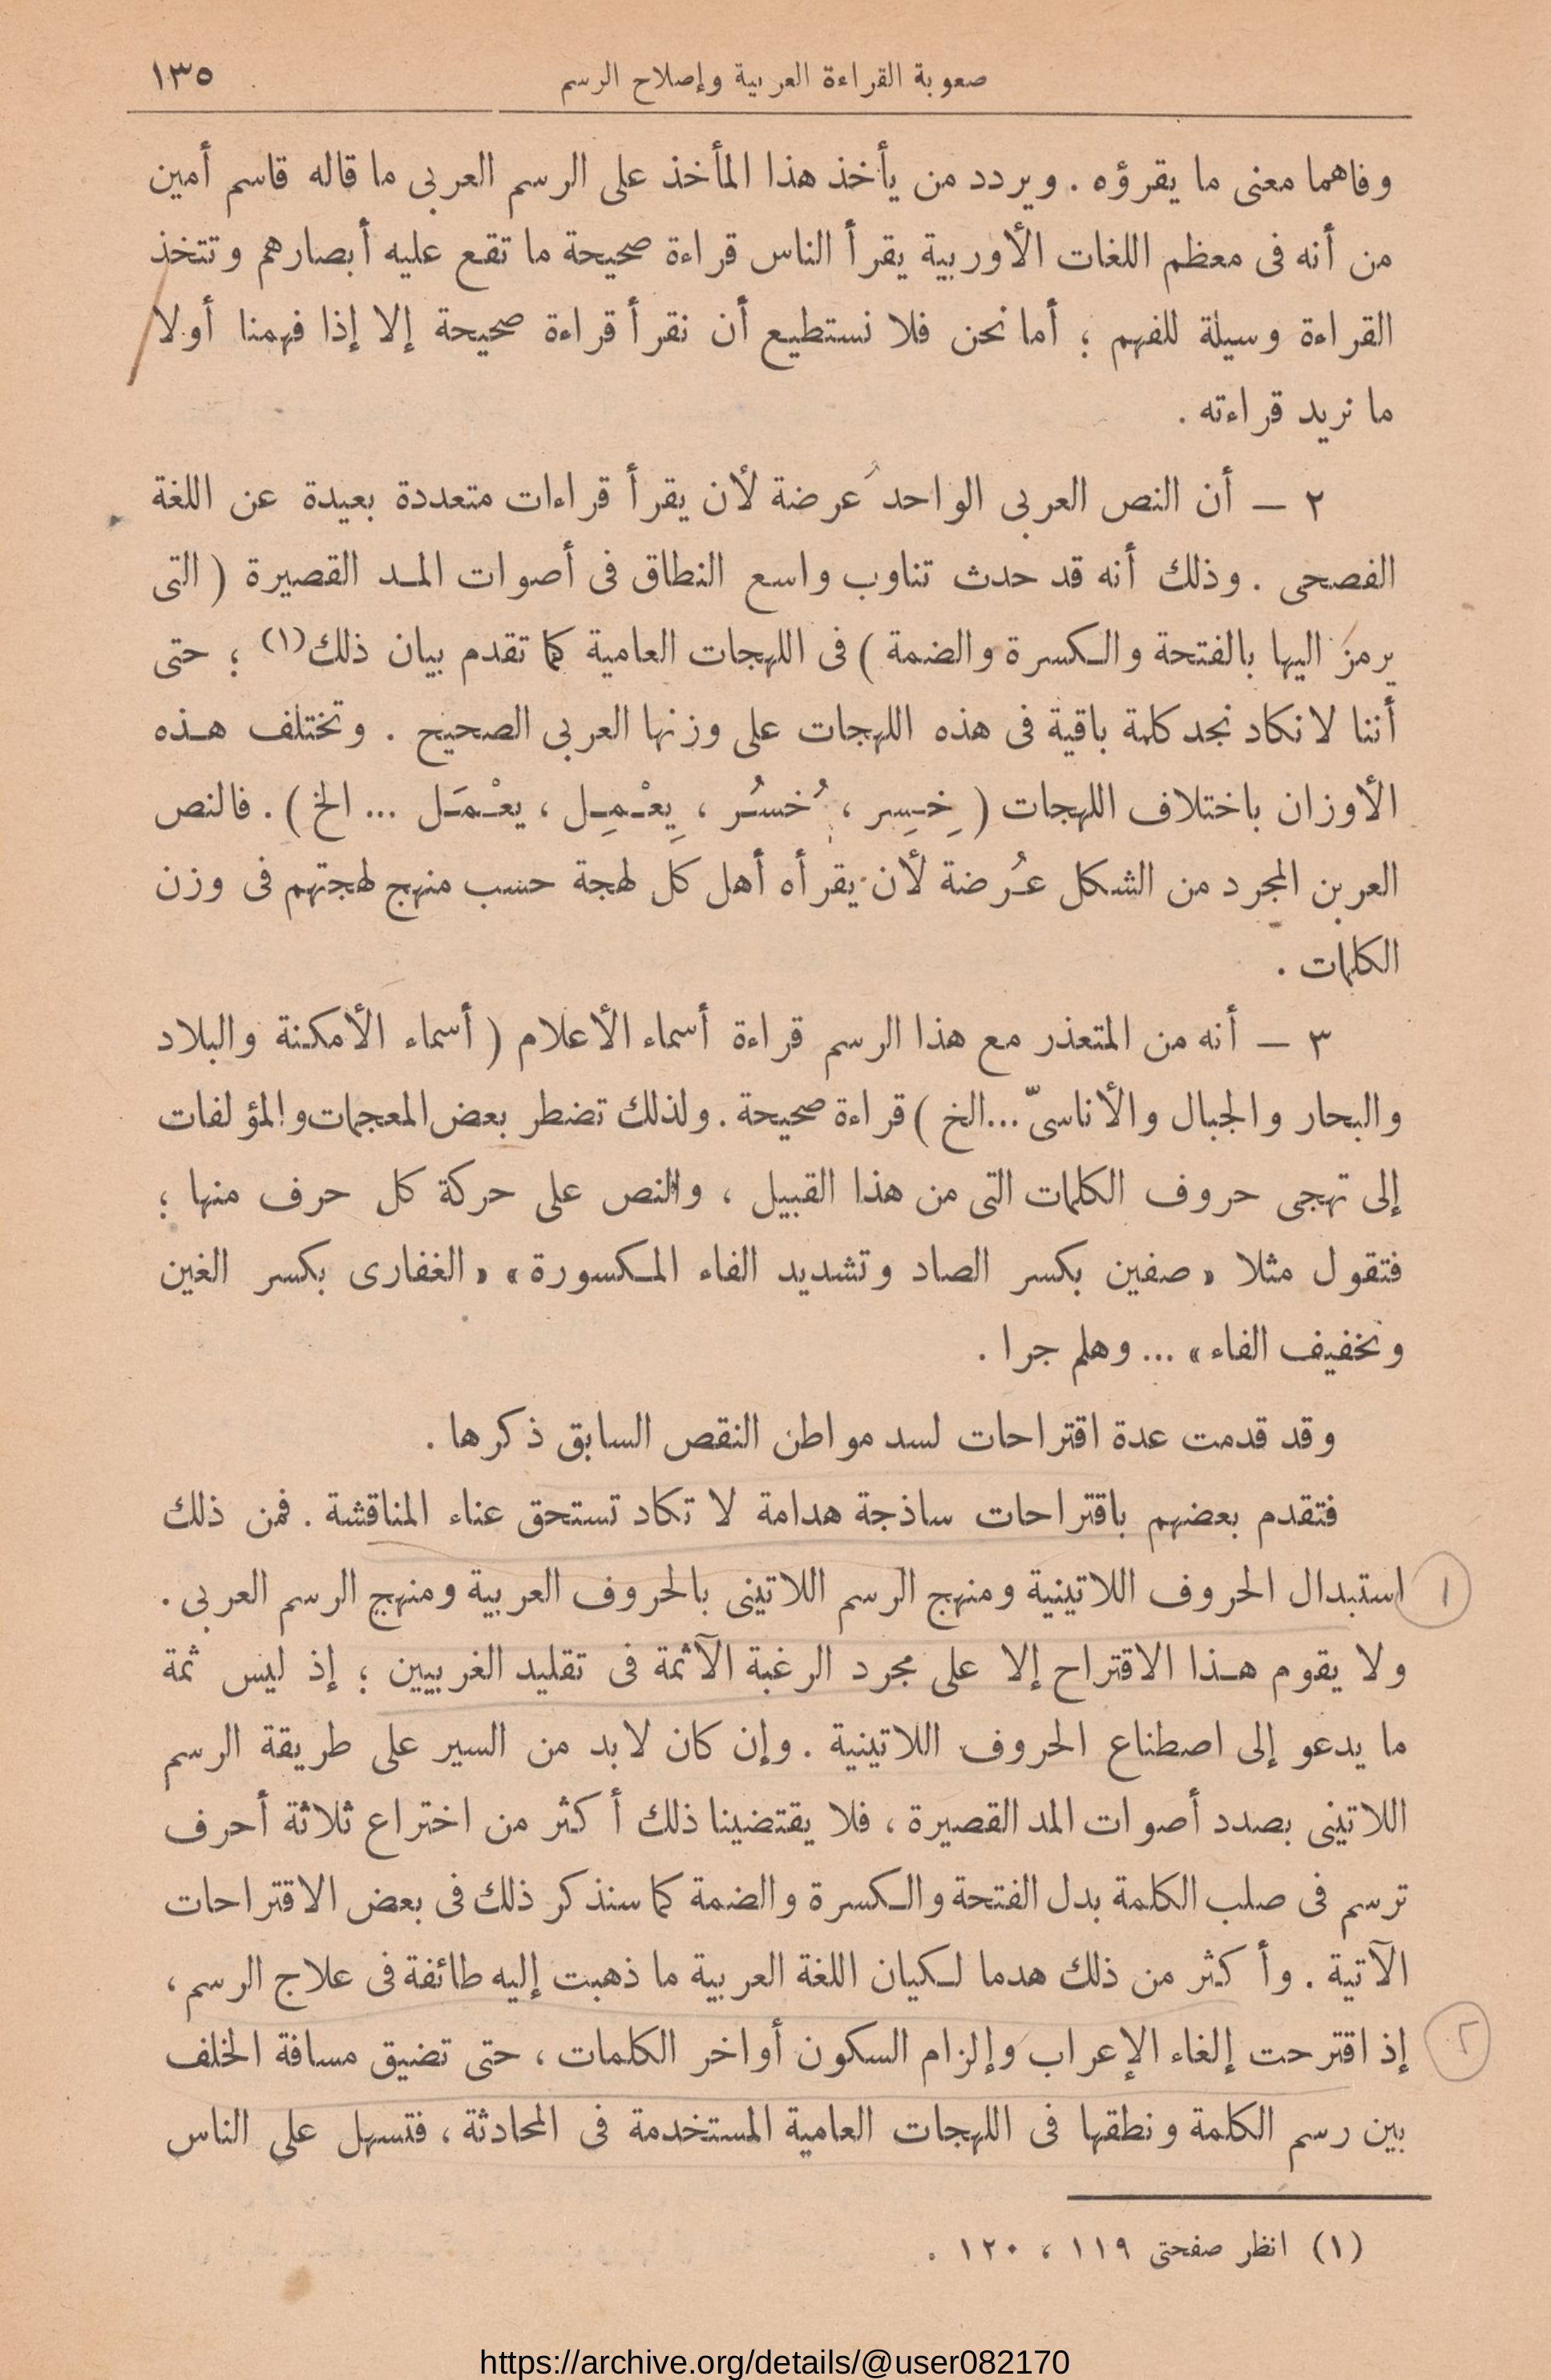 صعوبة القراءة العربية وإصلاح الرسم ١٣٥
وفاهما معنى ما يقرؤه . ويردد من يأخذ هذا المأخذ على الرسم العربى ما قاله قاسم أمين
من أنه فى معظم اللغات الأوربية يقرأ الناس قراءة صحيحة ما تقع عليه أبصارهم وتتخذ
القراءة وسيلة للفهم ؛ أما نحن فلا نستطيع أن نقرأ قراءة صحيحة إلا إذا فهمنا أولا
ما نريد قراءته .
٢ — أن النص العربى الواحد عُرضة لأن يقرأ قراءات متعددة بعيدة عن اللغة
الفصحى . وذلك أنه قد حدث تناوب واسع النطاق فى أصوات المد القصيرة ( التى
يرمز اليها بالفتحة والكسرة والضمة ) فى اللهجات العامية كما تقدم بيان ذلك(١) ؛ حتى
أننا لا نكاد نجد كلمة باقية فى هذه اللهجات على وزنها العربى الصحيح . وتختلف هذه
الأوزان باختلاف اللهجات ( خِسِر ، خُسُر ، يِعْمِل ، يعْمَل ... الخ ) . فالنص
العربن المجرد من الشكل عُرضة لأن يقرأه أهل كل لهجة حسب منهج لهجتهم فى وزن
الكلمات .
٣ — أنه من المتعذر مع هذا الرسم قراءة أسماء الأعلام ( أسماء الأمكنة والبلاد
والبحار والجبال والأناسىّ ... الخ ) قراءة صحيحة . ولذلك تضطر بعض المعجمات والمؤلفات
إلى تهجى حروف الكلمات التى من هذا القبيل ، والنص على حركة كل حرف منها ؛
فتقول مثلا « صفين بكسر الصاد وتشديد الفاء المكسورة» « الغفارى بكسر الغين
وتخفيف الفاء » ... وهلم جرا .
وقد قدمت عدة اقتراحات لسد مواطن النقص السابق ذكرها .
فتقدم بعضهم باقتراحات ساذجة هدامة لا تكاد تستحق عناء المناقشة . فمن ذلك
١ استبدال الحروف اللاتينية ومنهج الرسم اللاتينى بالحروف العربية ومنهج الرسم العربى .
ولا يقوم هذا الاقتراح إلا على مجرد الرغبة الآثمة فى تقليد الغربيين ؛ إذ ليس ثمة
ما يدعو إلى اصطناع الحروف اللاتينية . وإن كان لابد من السير على طريقة الرسم
اللاتينى بصدد أصوات المد القصيرة ، فلا يقتضينا ذلك أكثر من اختراع ثلاثة أحرف
ترسم فى صلب الكلمة بدل الفتحة والكسرة والضمة كما سنذكر ذلك فى بعض الاقتراحات
الآتية . وأكثر من ذلك هدما لكيان اللغة العربية ما ذهبت إليه طائفة فى علاج الرسم ،
٢ إذ اقترحت إلغاء الإعراب وإلزام السكون أواخر الكلمات ، حتى تضيق مسافة الخلف
بين رسم الكلمة ونطقها فى اللهجات العامية المستخدمة فى المحادثة ، فتسهل على الناس
(١) انظر صفحتى ١١٩ ، ١٢٠ .
https://archive.org/details/@user082170